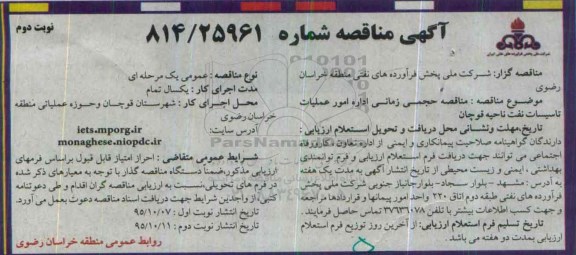 نوبت دوم
آگهی مناقصه شماره ۸۱۴/۲۵۹۶۱
شرکت ملی پخش فرآورده های نفتی ایران
مناقصه گزار: شرکت ملی پخش فرآورده های نفتی منطقه خراسان رضوی
موضوع مناقصه : مناقصه حجمی زمانی اداره امور عملیات تاسیسات نفت ناحیه قوچان
تاریخ،مهلت ونشانی محل دریافت و تحویل استعلام ارزیابی :
دارندگان گواهینامه صلاحیت پیمانکاری و ایمنی از اداره تعاون ،کارورفاه
اجتماعی می توانند جهت دریافت فرم استعلام ارزیابی و فرم توانمندی
بهداشتی ، ایمنی و زیست محیطی از تاریخ انتشار آگهی به مدت یک هفته
به آدرس : مشهد - بلوار سجاد- بلوارجانباز جنوبی شرکت ملی پخش
فرآورده های نفتی طبقه دوم اتاق ۲۲۰ واحد امور پیمانها و قراردادها مراجعه
و جهت کسب اطلاعات بیشتر با تلفن ۳۷۶۳۶۰۷۸ تماس حاصل فرمایند .
تاریخ تسلیم فرم استعلام ارزیابی: از آخرین روز توزیع فرم استعلام
ارزیابی بمدت دو هفته می باشد .
نوع مناقصه : عمومی یک مرحله ای
مدت اجرای کار : یکسال تمام
محل اجرای کار : شهرستان قوچان وحوزه عملیاتی منطقه
خراسان رضوی
آدرس سایت: iets.mporg.ir
monaghese.niopdc.ir
شرایط عمومی متقاضی : احراز امتیاز قابل قبول براساس فرمهای
ارزیابی مذکور،ضمنا دستگاه مناقصه گذار با توجه به معیارهای ذکر شده
در فرم های تحویلی،نسبت به ارزیابی مناقصه گران اقدام و طی دعوتنامه
کتبی،از واجدین شرایط جهت دریافت اسناد مناقصه دعوت بعمل می آورد.
تاریخ انتشار نوبت اول : ۹۵/۱۰/۰۷
تاریخ انتشار نوبت دوم : ۹۵/۱۰/۱۱
روابط عمومی منطقه خراسان رضوی